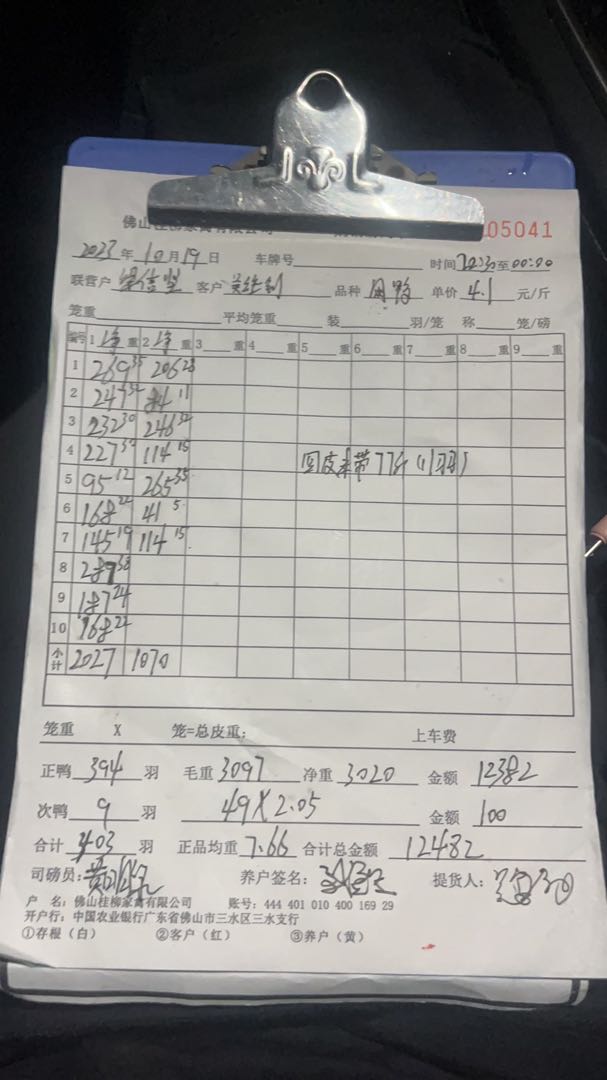 05041
2023年10月19日 车牌号 时间 22:30至00:00
联营户 客户 品种 单价 4.1 元/斤
笼重 平均笼重 装 羽/笼 称 笼/磅
编号 1 净重 2 净重 3 重 4 重 5 重 6 重 7 重 8 重 9 重
1 269 35 206 28
2 247 32 84 11
3 232 30 246 32
4 227 30 114 15 回皮未带77斤(1羽)
5 95 12 265 35
6 168 22 41 5
7 145 19 114 15
8 289 38
9 187 24
10 168 22
小计 2027 1070
笼重 X 笼=总皮重: 上车费
正鸭 394 羽 毛重 3097 净重 3020 金额 12382
次鸭 9 羽 49X2.05 金额 100
合计 403 羽 正品均重 7.66 合计总金额 12482
司磅员: 养户签名: 提货人:
户 名: 佛山桂柳家禽有限公司 账号: 444 401 010 400 169 29
开户行: 中国农业银行广东省佛山市三水区三水支行
①存根(白) ②客户(红) ③养户(黄)